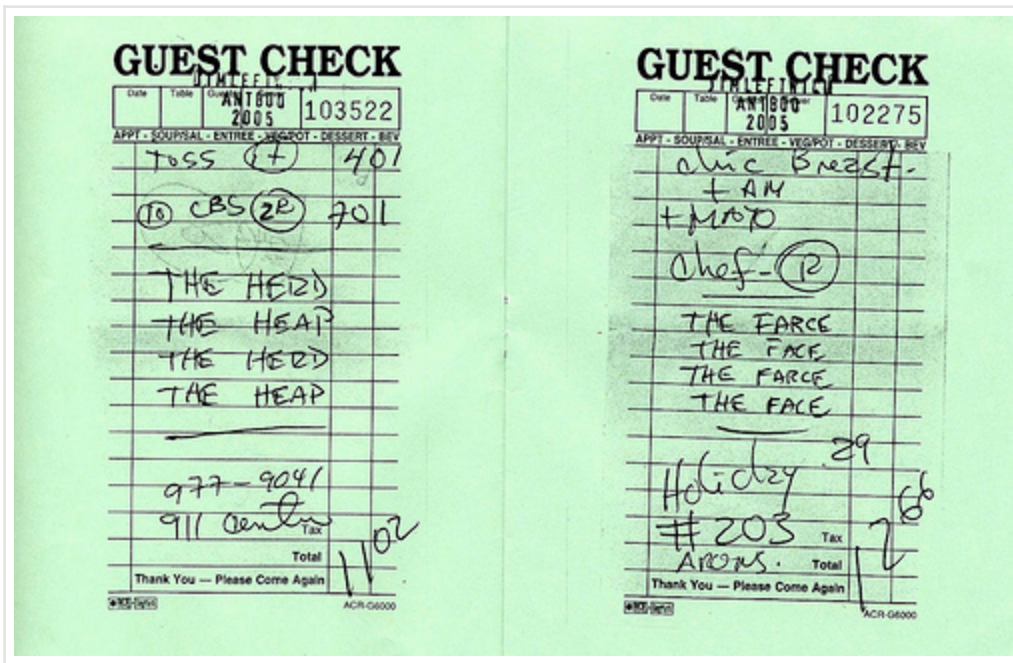 GUEST CHECK
Date Table Guests Server
ANTBOO
2005
103522
APPT - SOUP/SAL - ENTREE - VEG/POT - DESSERT - BEV
TOSS IT 401
TO CBS 2R 701
THE HERD
THE HEAP
THE HERD
THE HEAP
977-9041
911 Center
Tax
Total 1102
Thank You — Please Come Again
ACR-G6000
GUEST CHECK
JIMLEFTWICH
Date Table Server
ANTBOO
2005
102275
APPT - SOUP/SAL - ENTREE - VEG/POT - DESSERT - BEV
chic Breast.
+ AM
+ MAYO
chef - R
THE FARCE
THE FACE
THE FARCE
THE FACE
Holiday 29
#203 Tax
Aroms. Total 1266
Thank You — Please Come Again
ACR-G6000